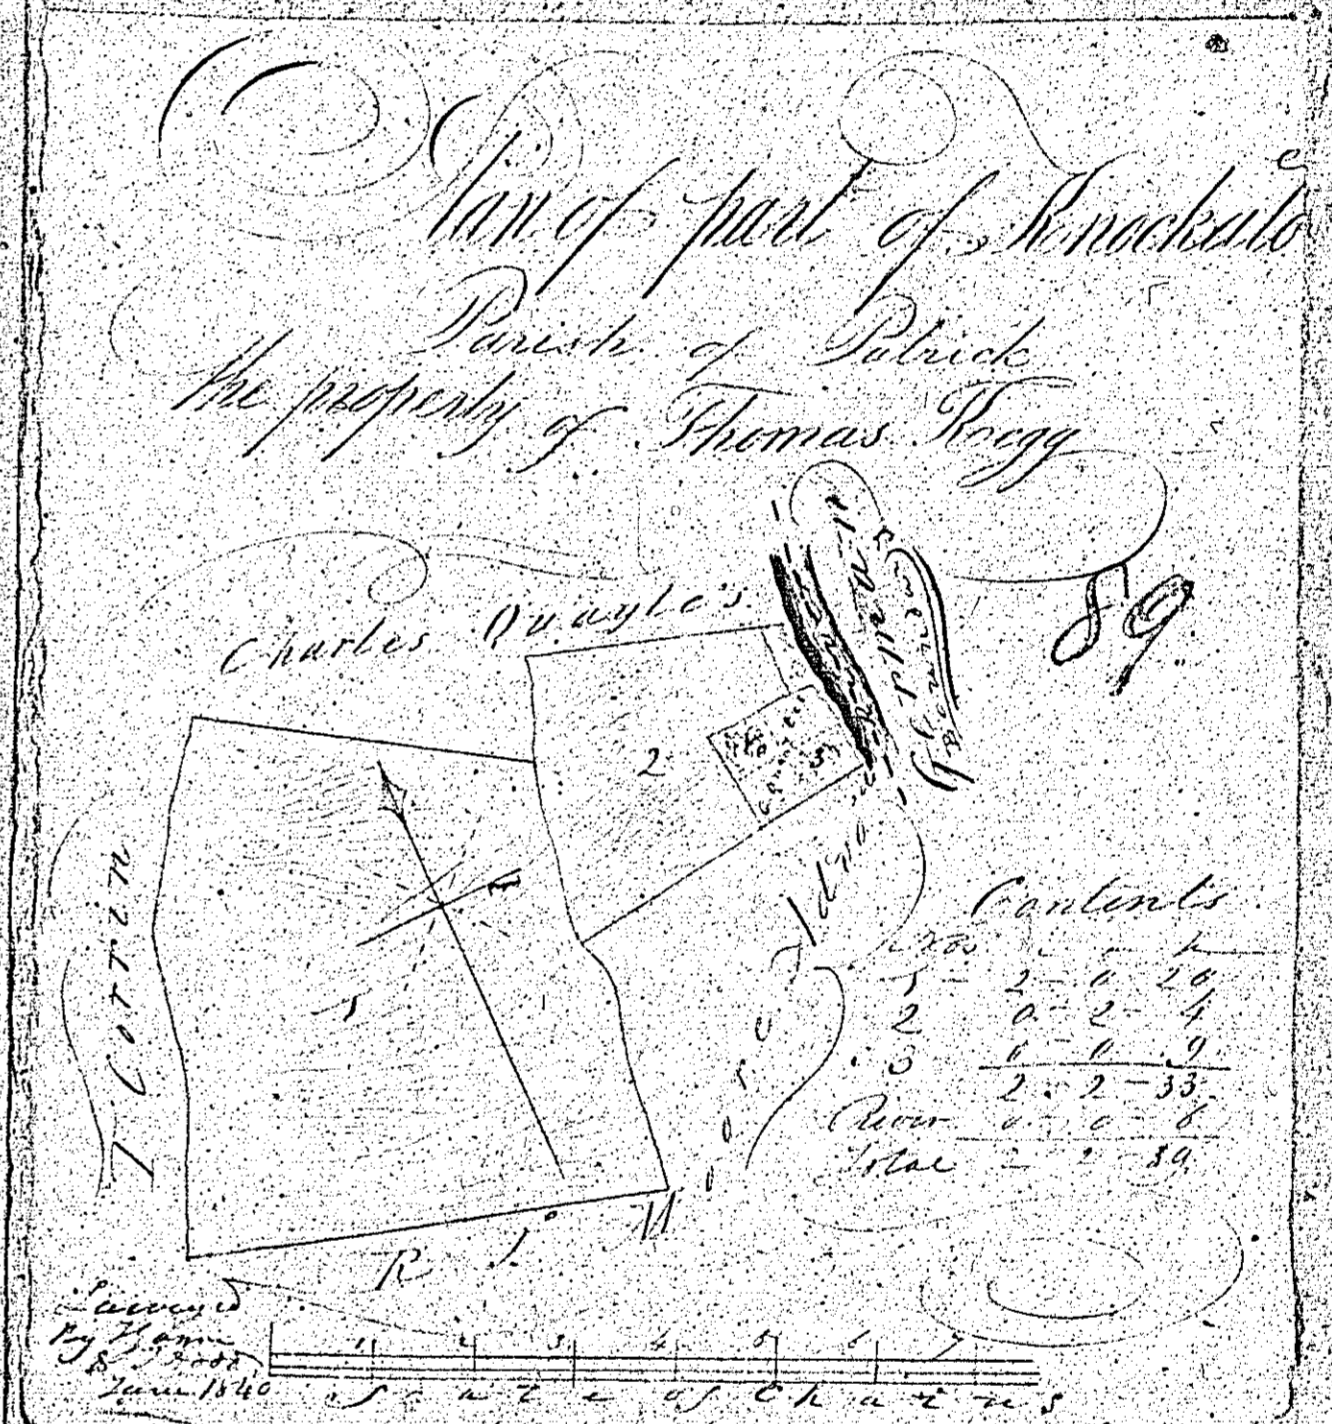 Plan of part of Knockaloe
Parish of Patrick
the property of Thomas Kegg
89
Charles Quayle's
River
2
3
T Corrin
1
Contents
Nos a r p
1 - 2 - 0 20
2 0 - 2 - 4
3 0 - 0 9
2 - 2 - 33
River 0 - 0 6
Total 2 2 - 39
R J. Moore
Surveyed
By
&
June 1840
1 2 3 4 5 6 7
Scale of Chains